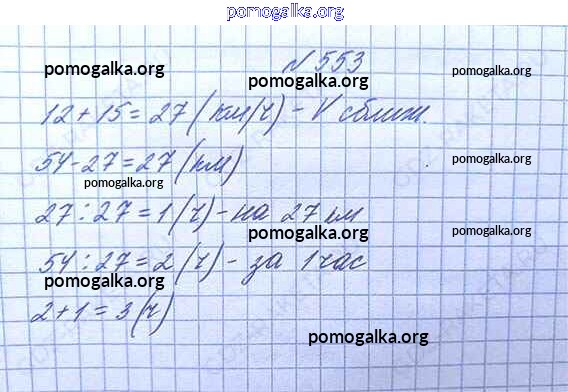 pomogalka.org
№ 553
pomogalka.org
pomogalka.org
12 + 15 = 27 (км/ч) - V сближ.
pomogalka.org
54 - 27 = 27 (км)
pomogalka.org
27 : 27 = 1 (ч) - на 27 км
pomogalka.org
54 : 27 = 2 (ч) - за 1 час
pomogalka.org
2 + 1 = 3 (ч)
pomogalka.org